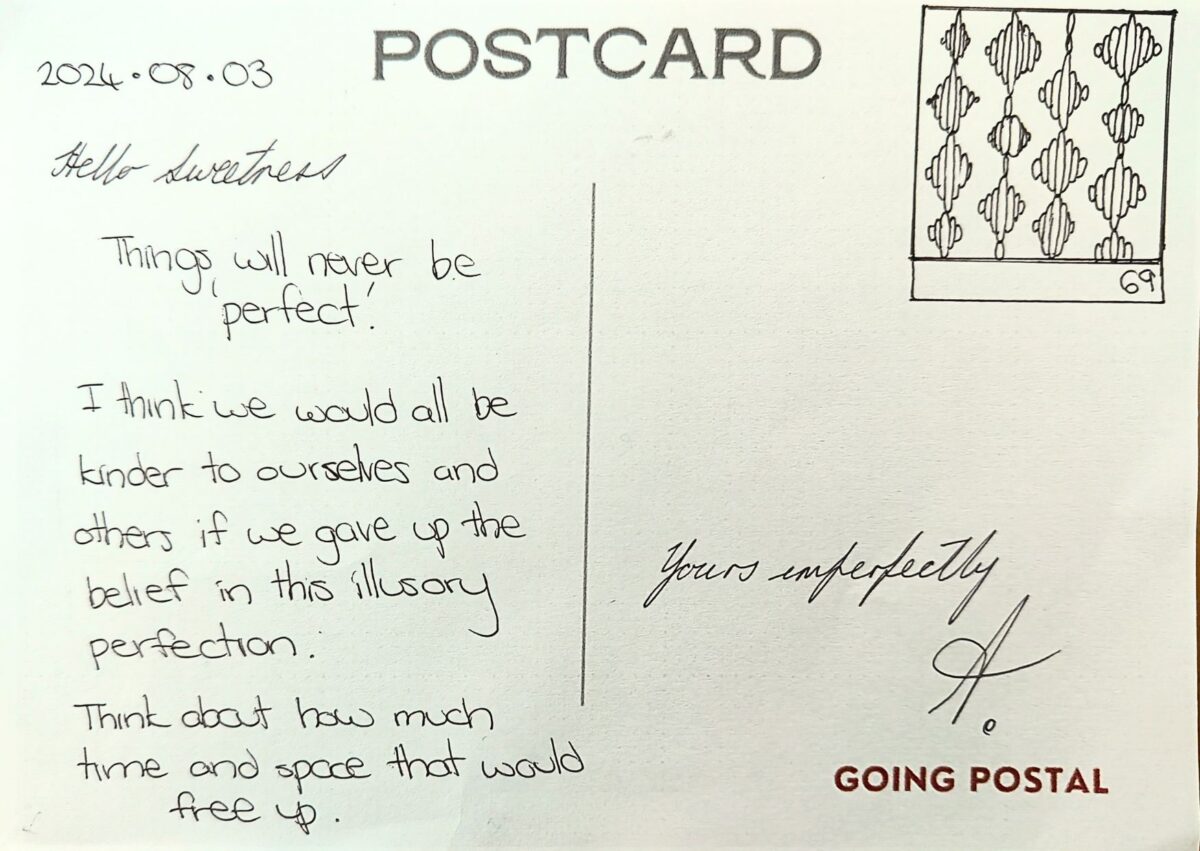 POSTCARD
2024.08.03
69
Hello Sweetness
Things will never be
'perfect'.
I think we would all be
kinder to ourselves and
others if we gave up the
belief in this illusory
perfection.
Think about how much
time and space that would
free up.
Yours imperfectly
A.
GOING POSTAL